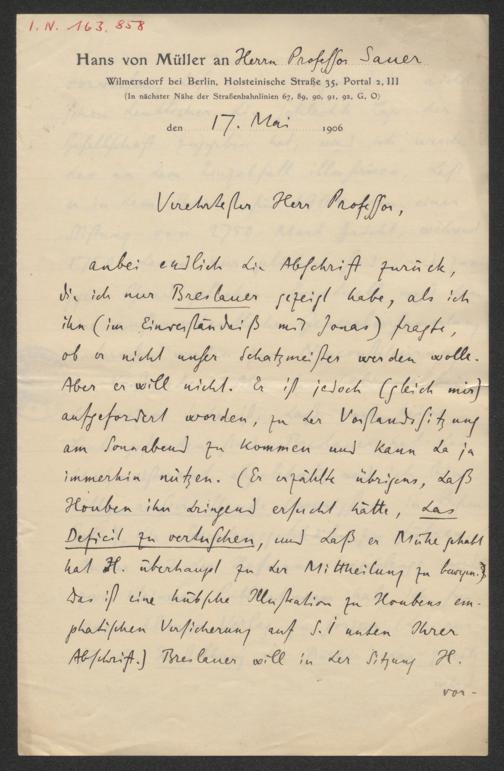 I. N. 163.858
Hans von Müller an Herrn Professor Sauer
Wilmersdorf bei Berlin, Holsteinische Straße 35, Portal 2, III
(In nächster Nähe der Straßenbahnlinien 67, 89, 90, 91, 92, G, O)
den 17. Mai 1906
Verehrtester Herr Professor,
anbei endlich die Abschrift zurück,
die ich nur Breslauer gezeigt habe, als ich
ihn (im Einverständniß mit Jonas) fragte,
ob er nicht unser Schatzmeister werden wolle.
Aber er will nicht. Er ist jedoch (gleich mir)
aufgefordert worden, zu der Vorstandssitzung
am Sonnabend zu kommen und kann da ja
immerhin nützen. (Er erzählte übrigens, daß
Houben ihn dringend ersucht hätte, das
Deficit zu vertuschen, und daß er Mühe gehabt
hat H. überhaupt zu der Mittheilung zu bewegen.
Das ist eine hübsche Illustration zu Houbens em-
phatischen Versicherung auf S. 1 unten Ihrer
Abschrift.) Breslauer will in der Sitzung H.
vor-